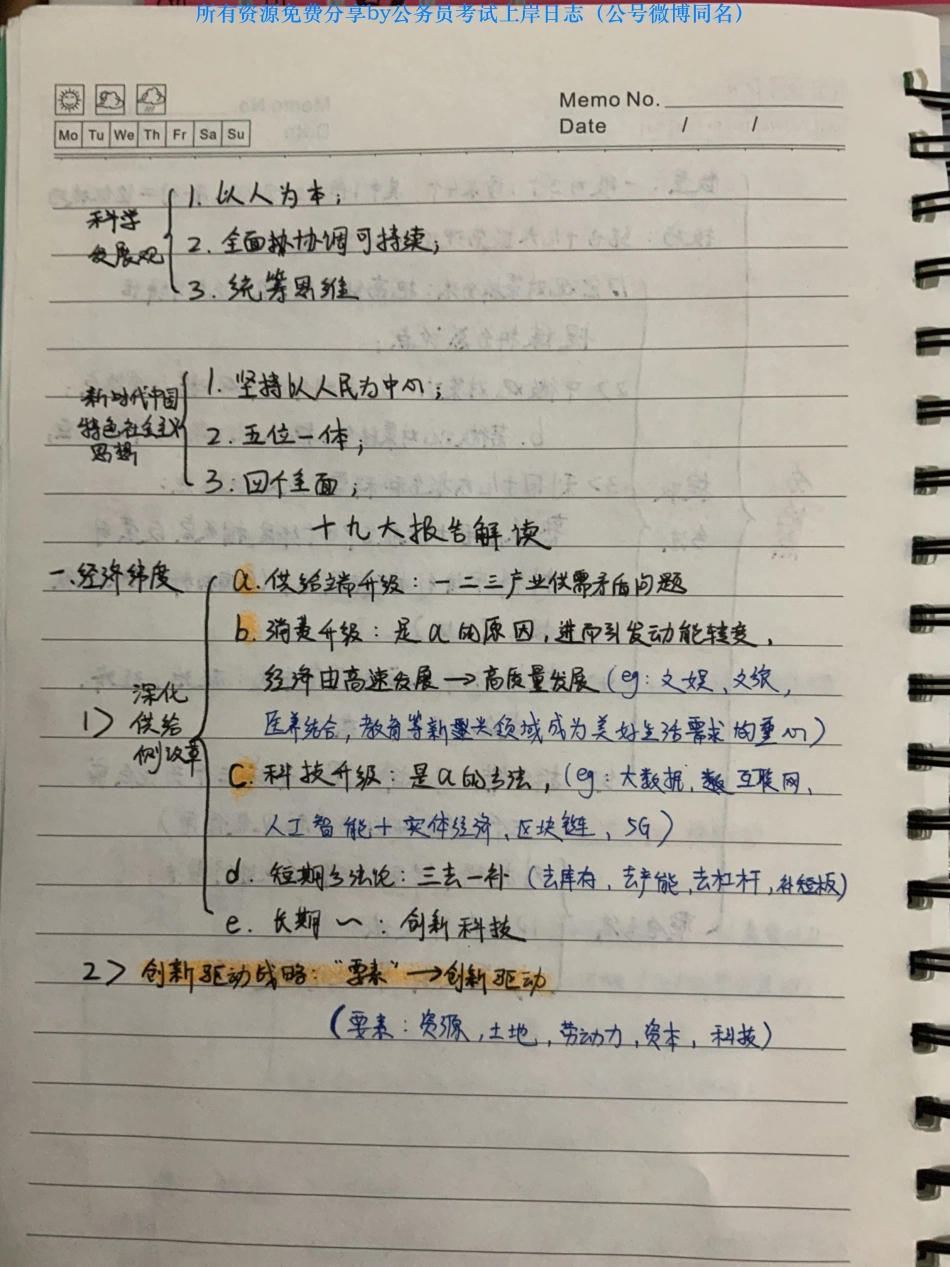 所有资源免费分享by公务员考试上岸日志（公号微博同名）
Memo No.
Mo Tu We Th Fr Sa Su
Date / /
科学
发展观
1. 以人为本；
2. 全面协调可持续；
3. 统筹思维
新时代中国
特色社会主义
思想
1. 坚持以人民为中心；
2. 五位一体；
3. 四个全面；
十九大报告解读
一、经济纬度
1> 深化
供给
侧改革
a. 供给端升级：一二三产业供需矛盾问题
b. 消费升级：是a的原因，进而引发动能转变，
经济由高速发展→高质量发展（eg：文娱、文旅，
医养结合，教育等新兴领域成为美好生活需求的重心）
c. 科技升级：是a的方法，（eg：大数据，互联网、
人工智能＋实体经济、区块链、5G）
d. 短期方法论：三去一补（去库存、去产能，去杠杆，补短板）
e. 长期 〜：创新科技
2> 创新驱动战略：“要素”→创新驱动
（要素：资源，土地，劳动力，资本，科技）